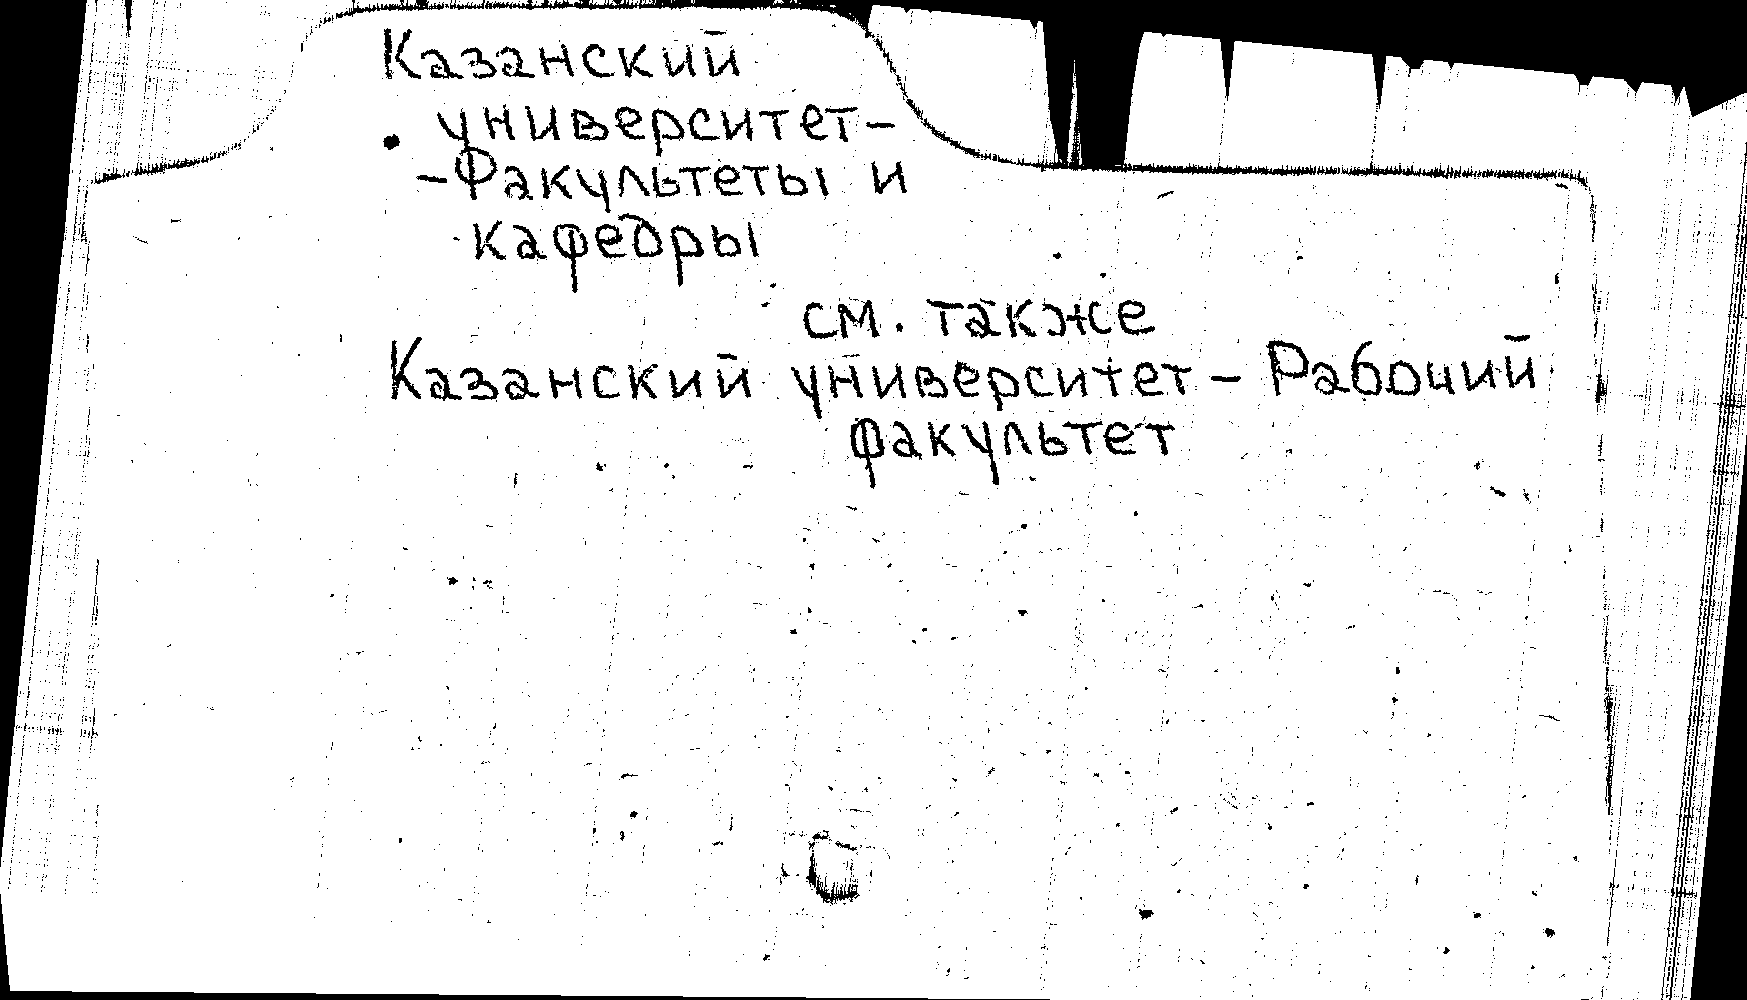 Казанский
университет-
-Факультеты и
кафедры
см. также
Казанский университет - Рабочий
факультет